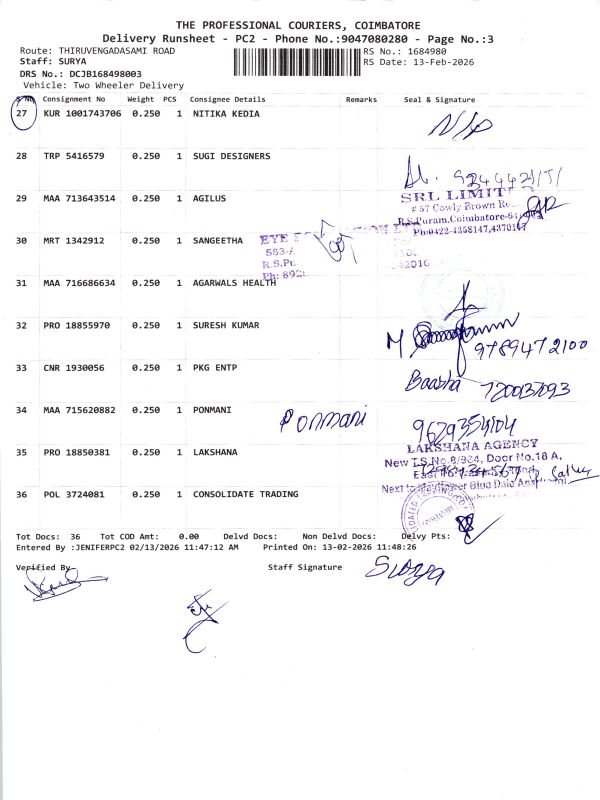 THE PROFESSIONAL COURIERS, COIMBATORE
Delivery Runsheet - PC2 - Phone No.:9047080280 - Page No.:3
Route: THIRUVENGADASAMI ROAD RS No.: 1684980
Staff: SURYA RS Date: 13-Feb-2026
DRS No.: DCJB168498003
Vehicle: Two Wheeler Delivery
S No. Consignment No Weight PCS Consignee Details Remarks Seal & Signature
27 KUR 1001743706 0.250 1 NITIKA KEDIA
28 TRP 5416579 0.250 1 SUGI DESIGNERS
29 MAA 713643514 0.250 1 AGILUS
SRL LIMIT
# 57 Cowly Brown
R.S.Puram,Coimbatore-
Ph:0422-4358147,4370147
30 MRT 1342912 0.250 1 SANGEETHA
EYE
583-A
R.S.Pu
Ph: 892
31 MAA 716686634 0.250 1 AGARWALS HEALTH
32 PRO 18855970 0.250 1 SURESH KUMAR
9789472100
33 CNR 1930056 0.250 1 PKG ENTP
Baasha
34 MAA 715620882 0.250 1 PONMANI Ponmani
35 PRO 18850381 0.250 1 LAKSHANA
LAKSHANA AGENCY
New T.S.No.8/924, Door No.18 A,
East
Next to Mayflower Blue Dale
36 POL 3724081 0.250 1 CONSOLIDATE TRADING
Tot Docs: 36 Tot COD Amt: 0.00 Delvd Docs: Non Delvd Docs: Delvy Pts:
Entered By :JENIFERPC2 02/13/2026 11:47:12 AM Printed On: 13-02-2026 11:48:26
Verified By Staff Signature Surya